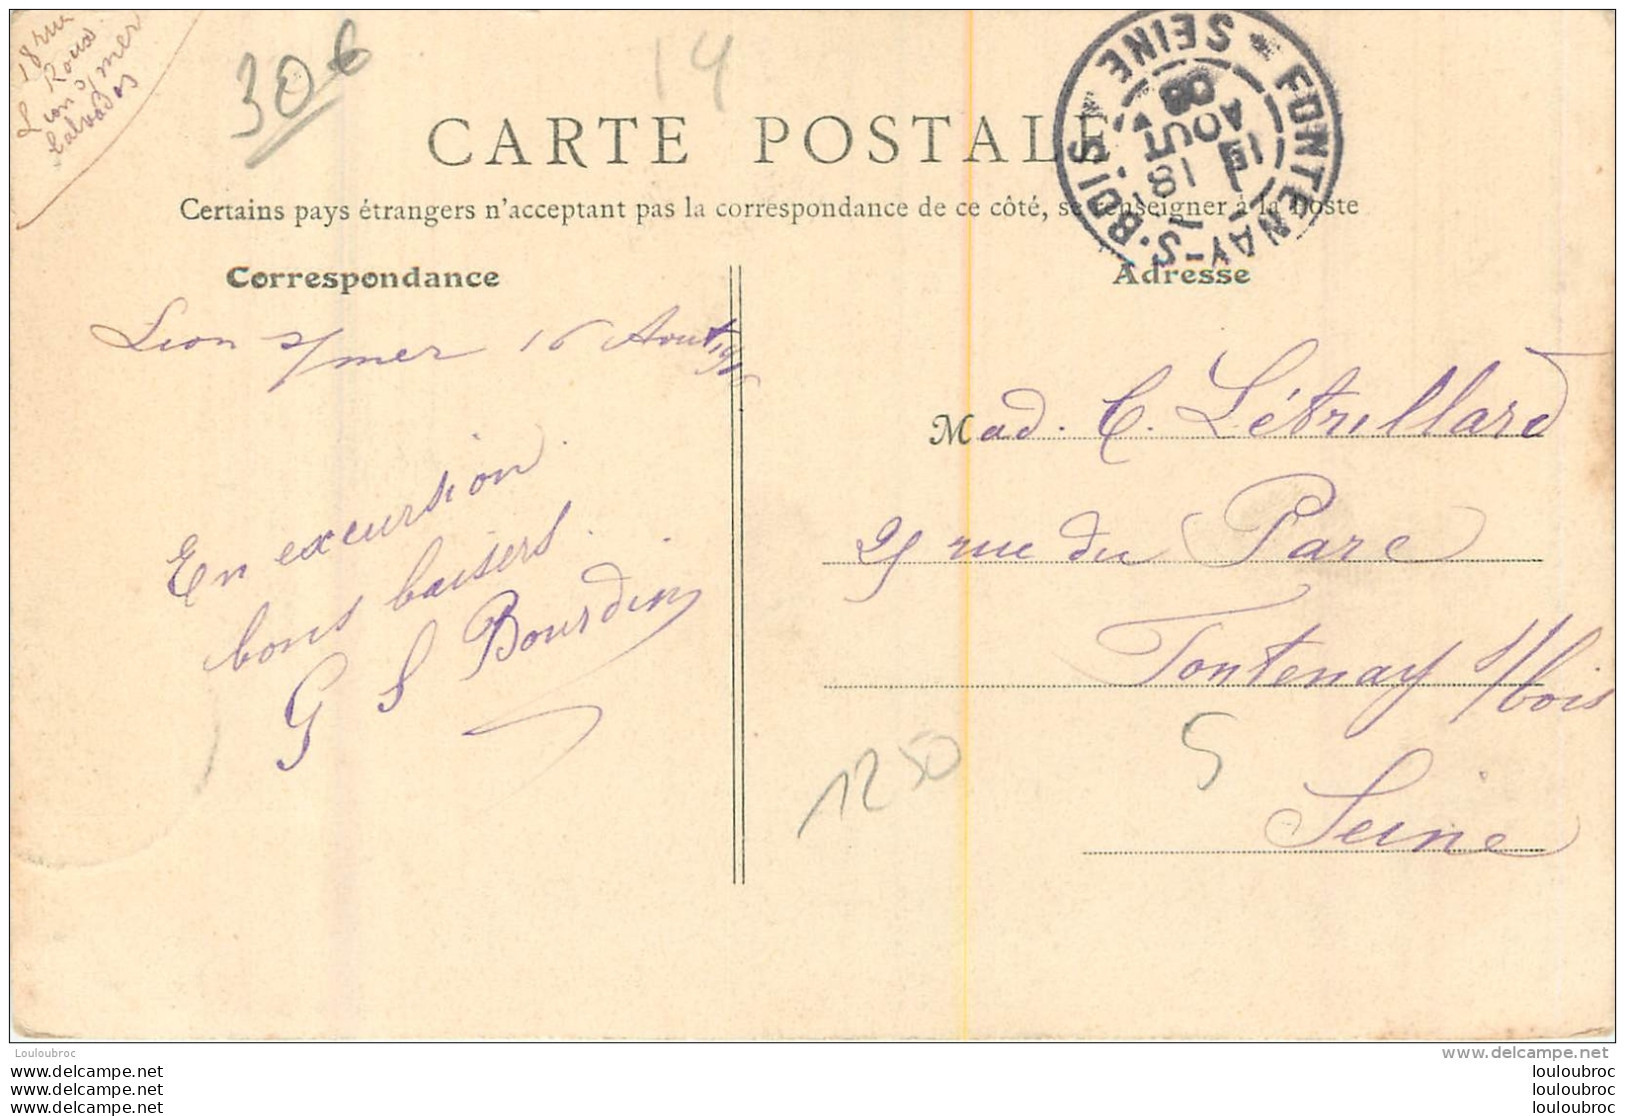 18 rue
Roux
Lion s/mer
Calvados
30 €
14
CARTE POSTALE
Certains pays étrangers n'acceptent pas la correspondance de ce côté, se renseigner à la Poste
FONTENAY-S-BOIS * SEINE
18
AOUT
08
Correspondance
Adresse
Lion s/mer 16 Août
En excursion
bons baisers.
G S Bourdin
Mad. C. Létrillard
25 rue du Parc
Fontenay s/bois
Seine
1250
5
Louloubroc
www.delcampe.net
louloubroc
louloubroc
louloubroc
louloubroc
louloubroc
louloubroc